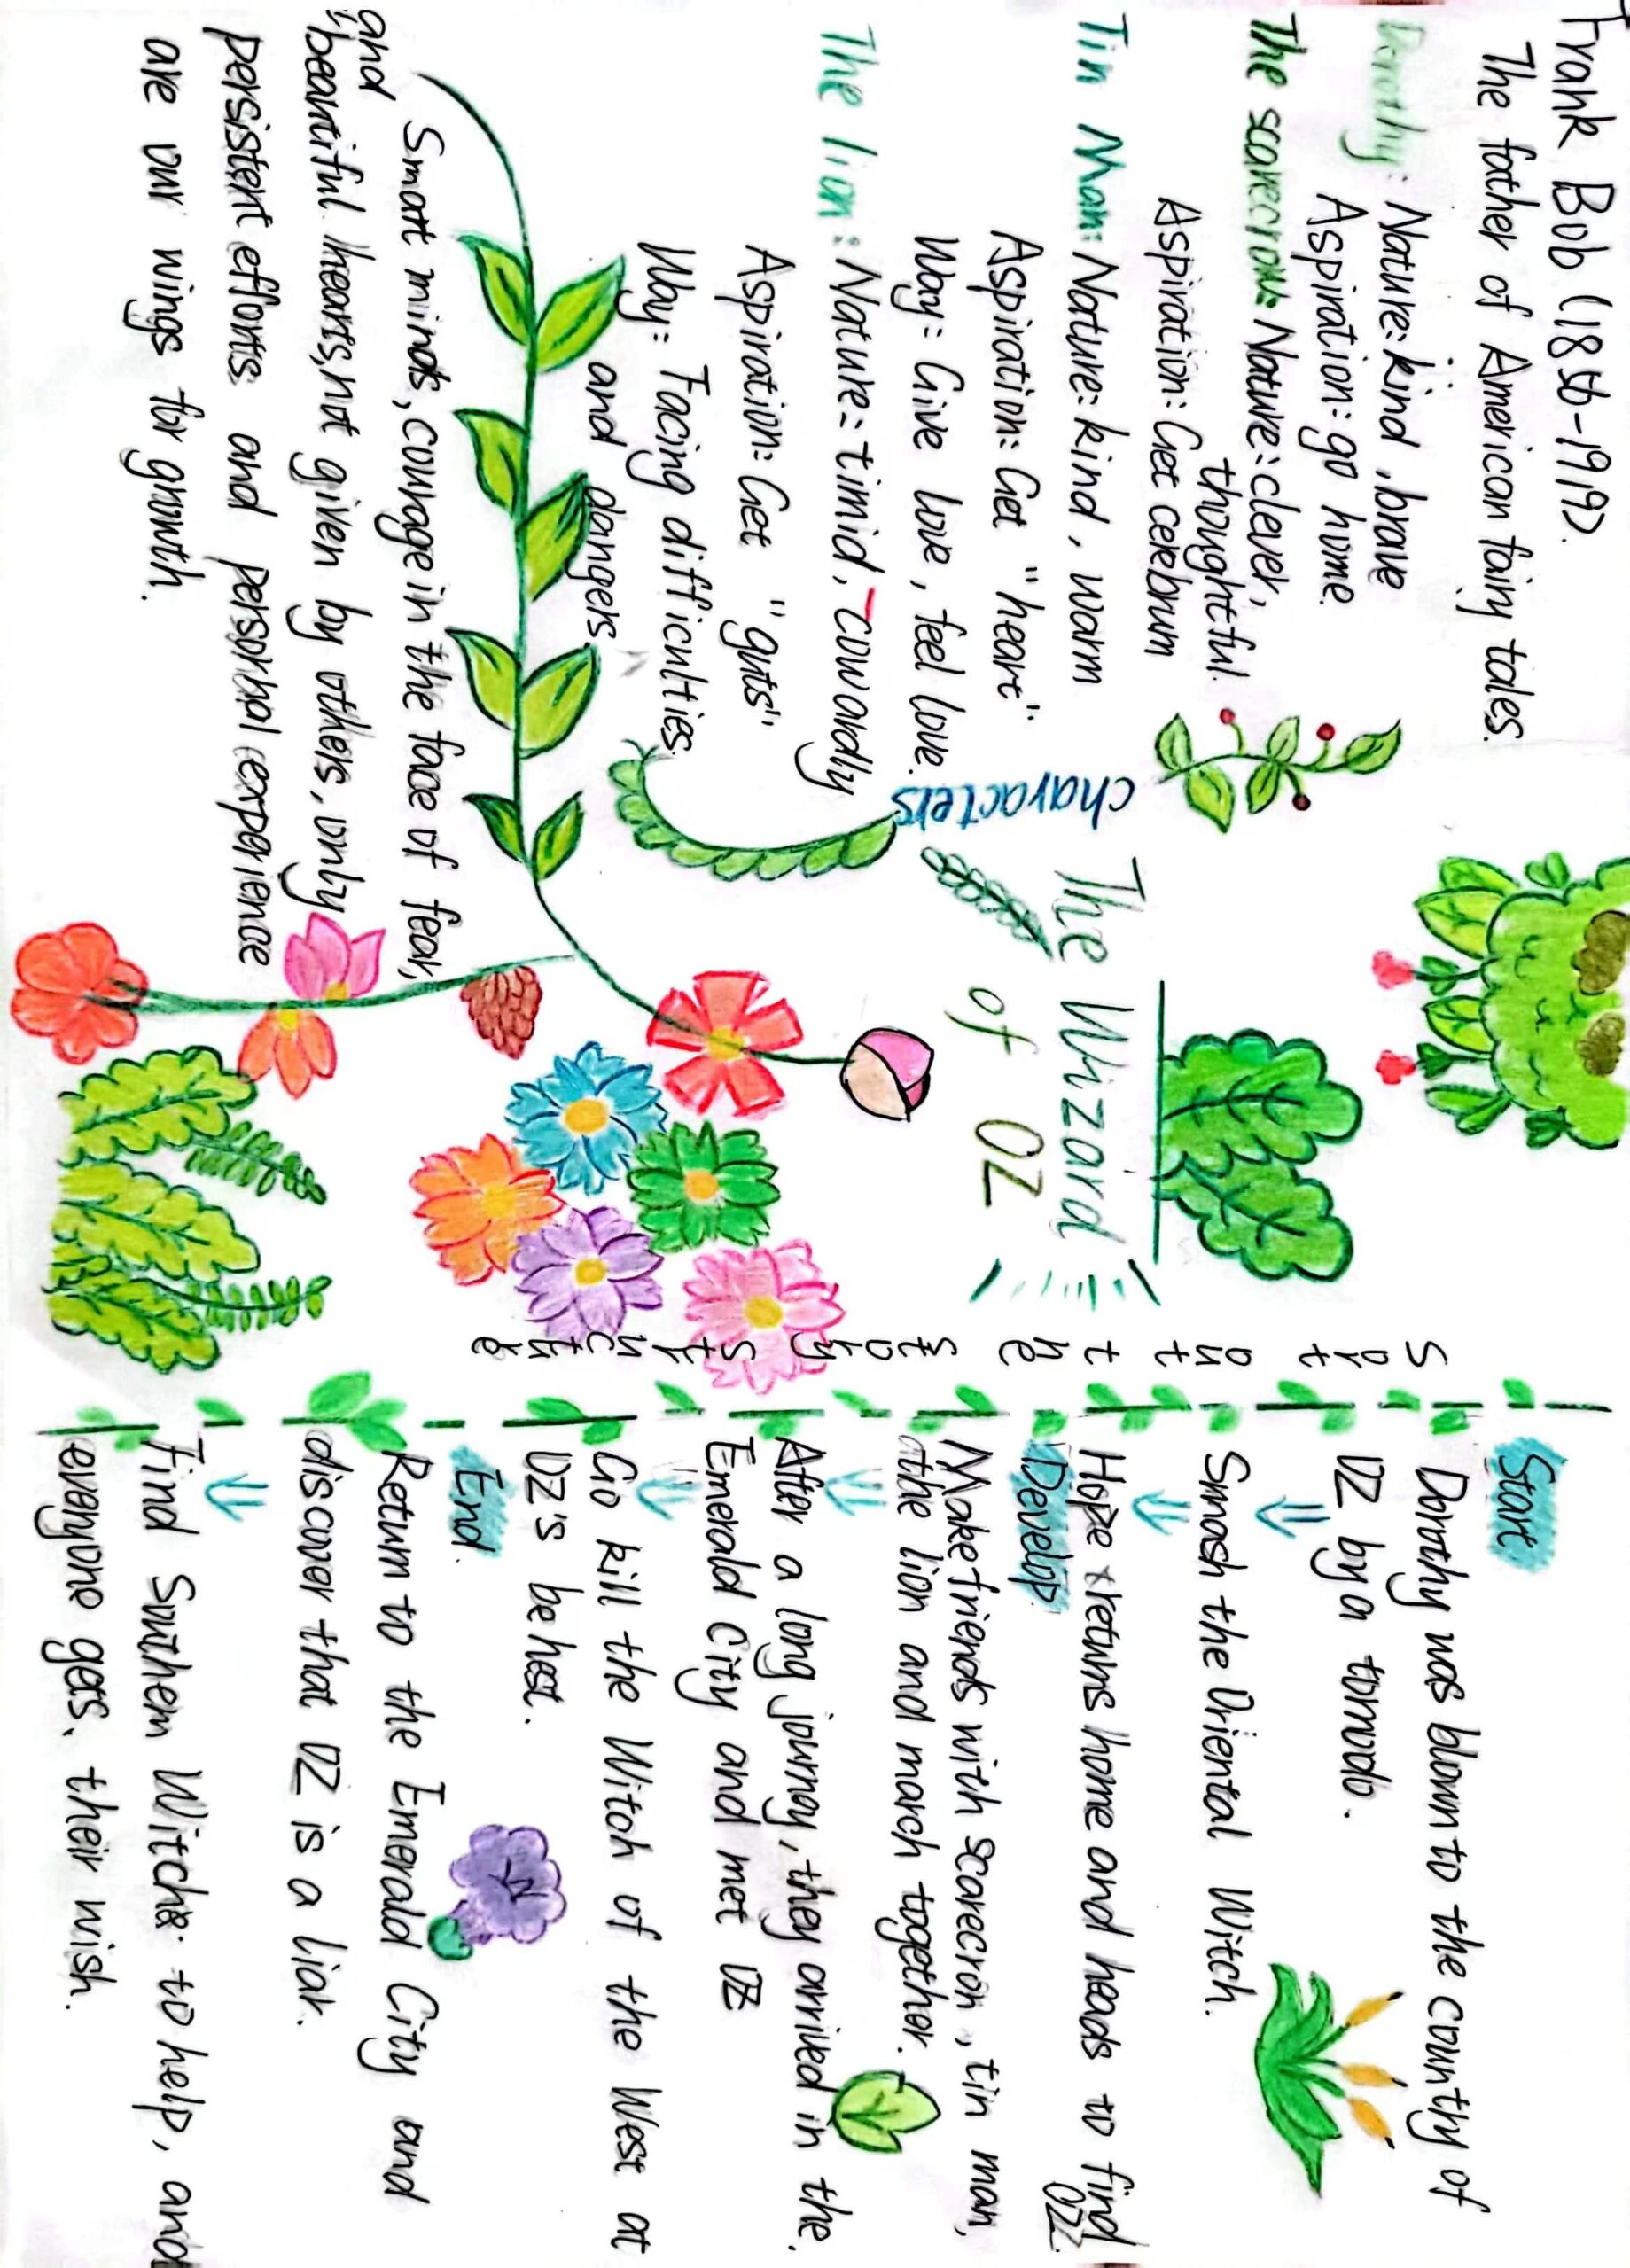 Frank Bob (1856-1919).
The father of American fairy tales.
Dorothy: Nature: kind, brave
Aspiration: go home.
The scarecrow: Nature: clever,
thoughtful.
Aspiration: Get cerebrum
Tin Man: Nature: kind, warm
Aspiration: Get "heart"
Way: Give love, feel love.
The lion: Nature: timid, cowardly
Aspiration: Get "guts".
Way: Facing difficulties
and dangers
characters
Smart minds, courage in the face of fear,
and
beautiful hearts, not given by others, only
persistent efforts and personal experience
are our wings for growth.
The Wizard
of OZ
Sort out the story structure
Start
Dorothy was blown to the country of
OZ by a tornado.
⇓
Smash the Oriental Witch.
⇓
Hope returns home and heads to find
OZ.
Develop
Make friends with scarecrow, tin man,
the lion and march together.
⇓
After a long journey, they arrived in the
Emerald City and met OZ
⇓
Go kill the Witch of the West at
OZ's behest.
End.
Return to the Emerald City and
discover that OZ is a liar.
⇓
Find Southern Witch to help, and
everyone gets their wish.